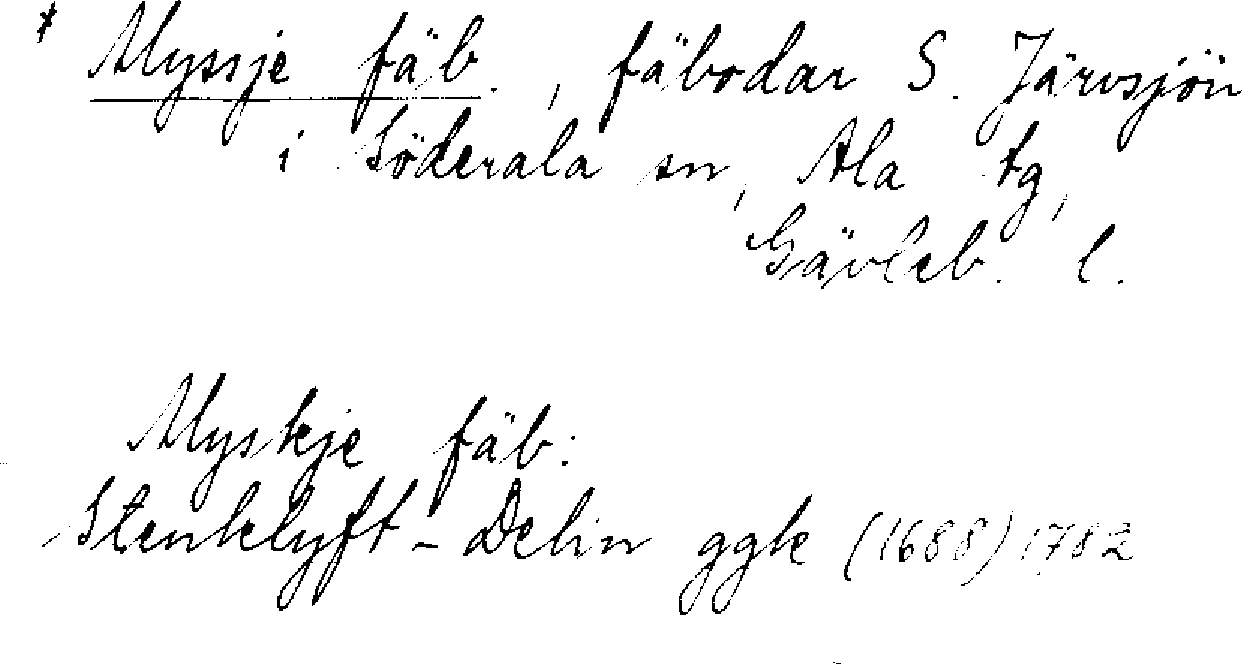 * Myssje fäb., fäbodar S. Järvsjön
i Söderala sn, Ala tg,
Gävleb. l.
Myskje fäb:
Stenklyft - Delin ggk (1688) 1782